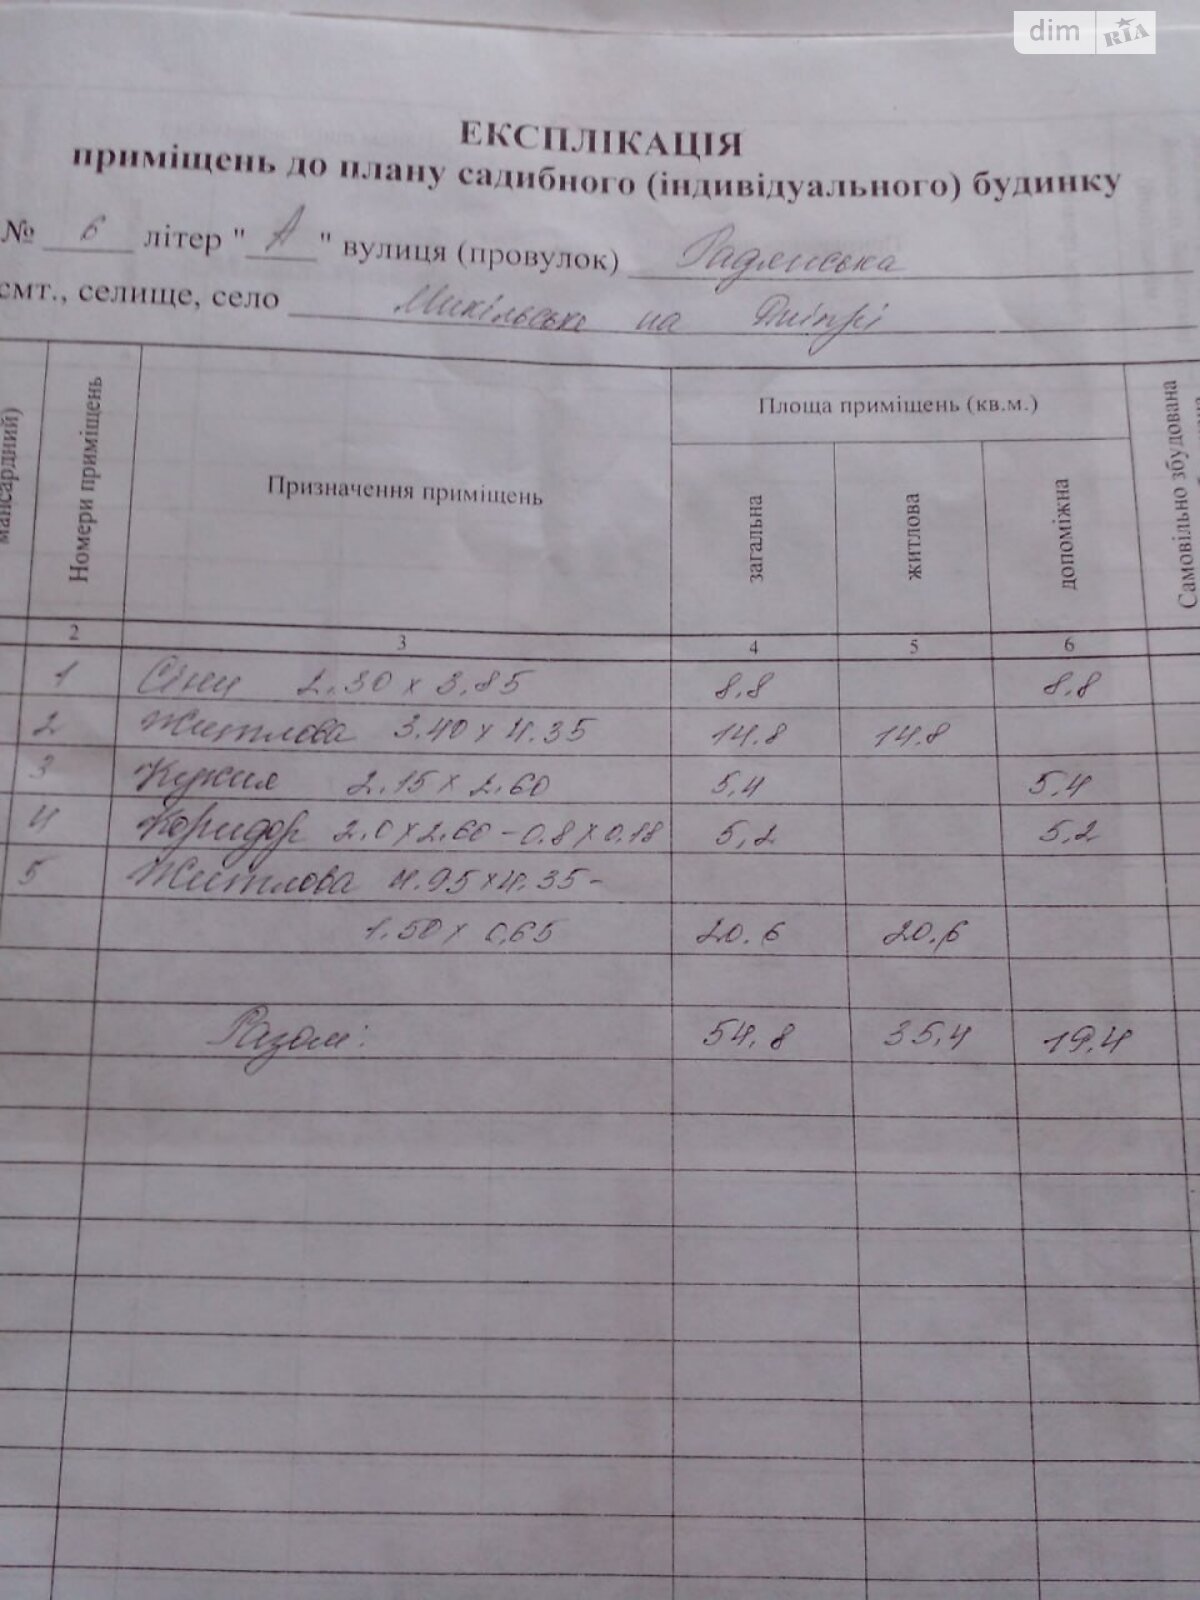 dim RIA
ЕКСПЛІКАЦІЯ
приміщень до плану садибного (індивідуального) будинку
№ 6 літер "А" вулиця (провулок) Радянська
смт., селище, село Микільське на Дніпрі
мансардний)
Номери приміщень
Призначення приміщень
Площа приміщень (кв.м.)
загальна
житлова
допоміжна
Самовільно збудована
2 3 4 5 6
1 Сіни 2.30 х 3.85 8.8 8.8
2 Житлова 3.40 х 4.35 14.8 14.8
3 Кухня 2.15 х 2.60 5,4 5,4
4 Коридор 2.0 х 2.60 - 0.8 х 0.18 5,2 5,2
5 Житлова 4.95 х 4.35 -
1.50 х 0,65 20.6 20.6
Разом: 54.8 35,4 19,4